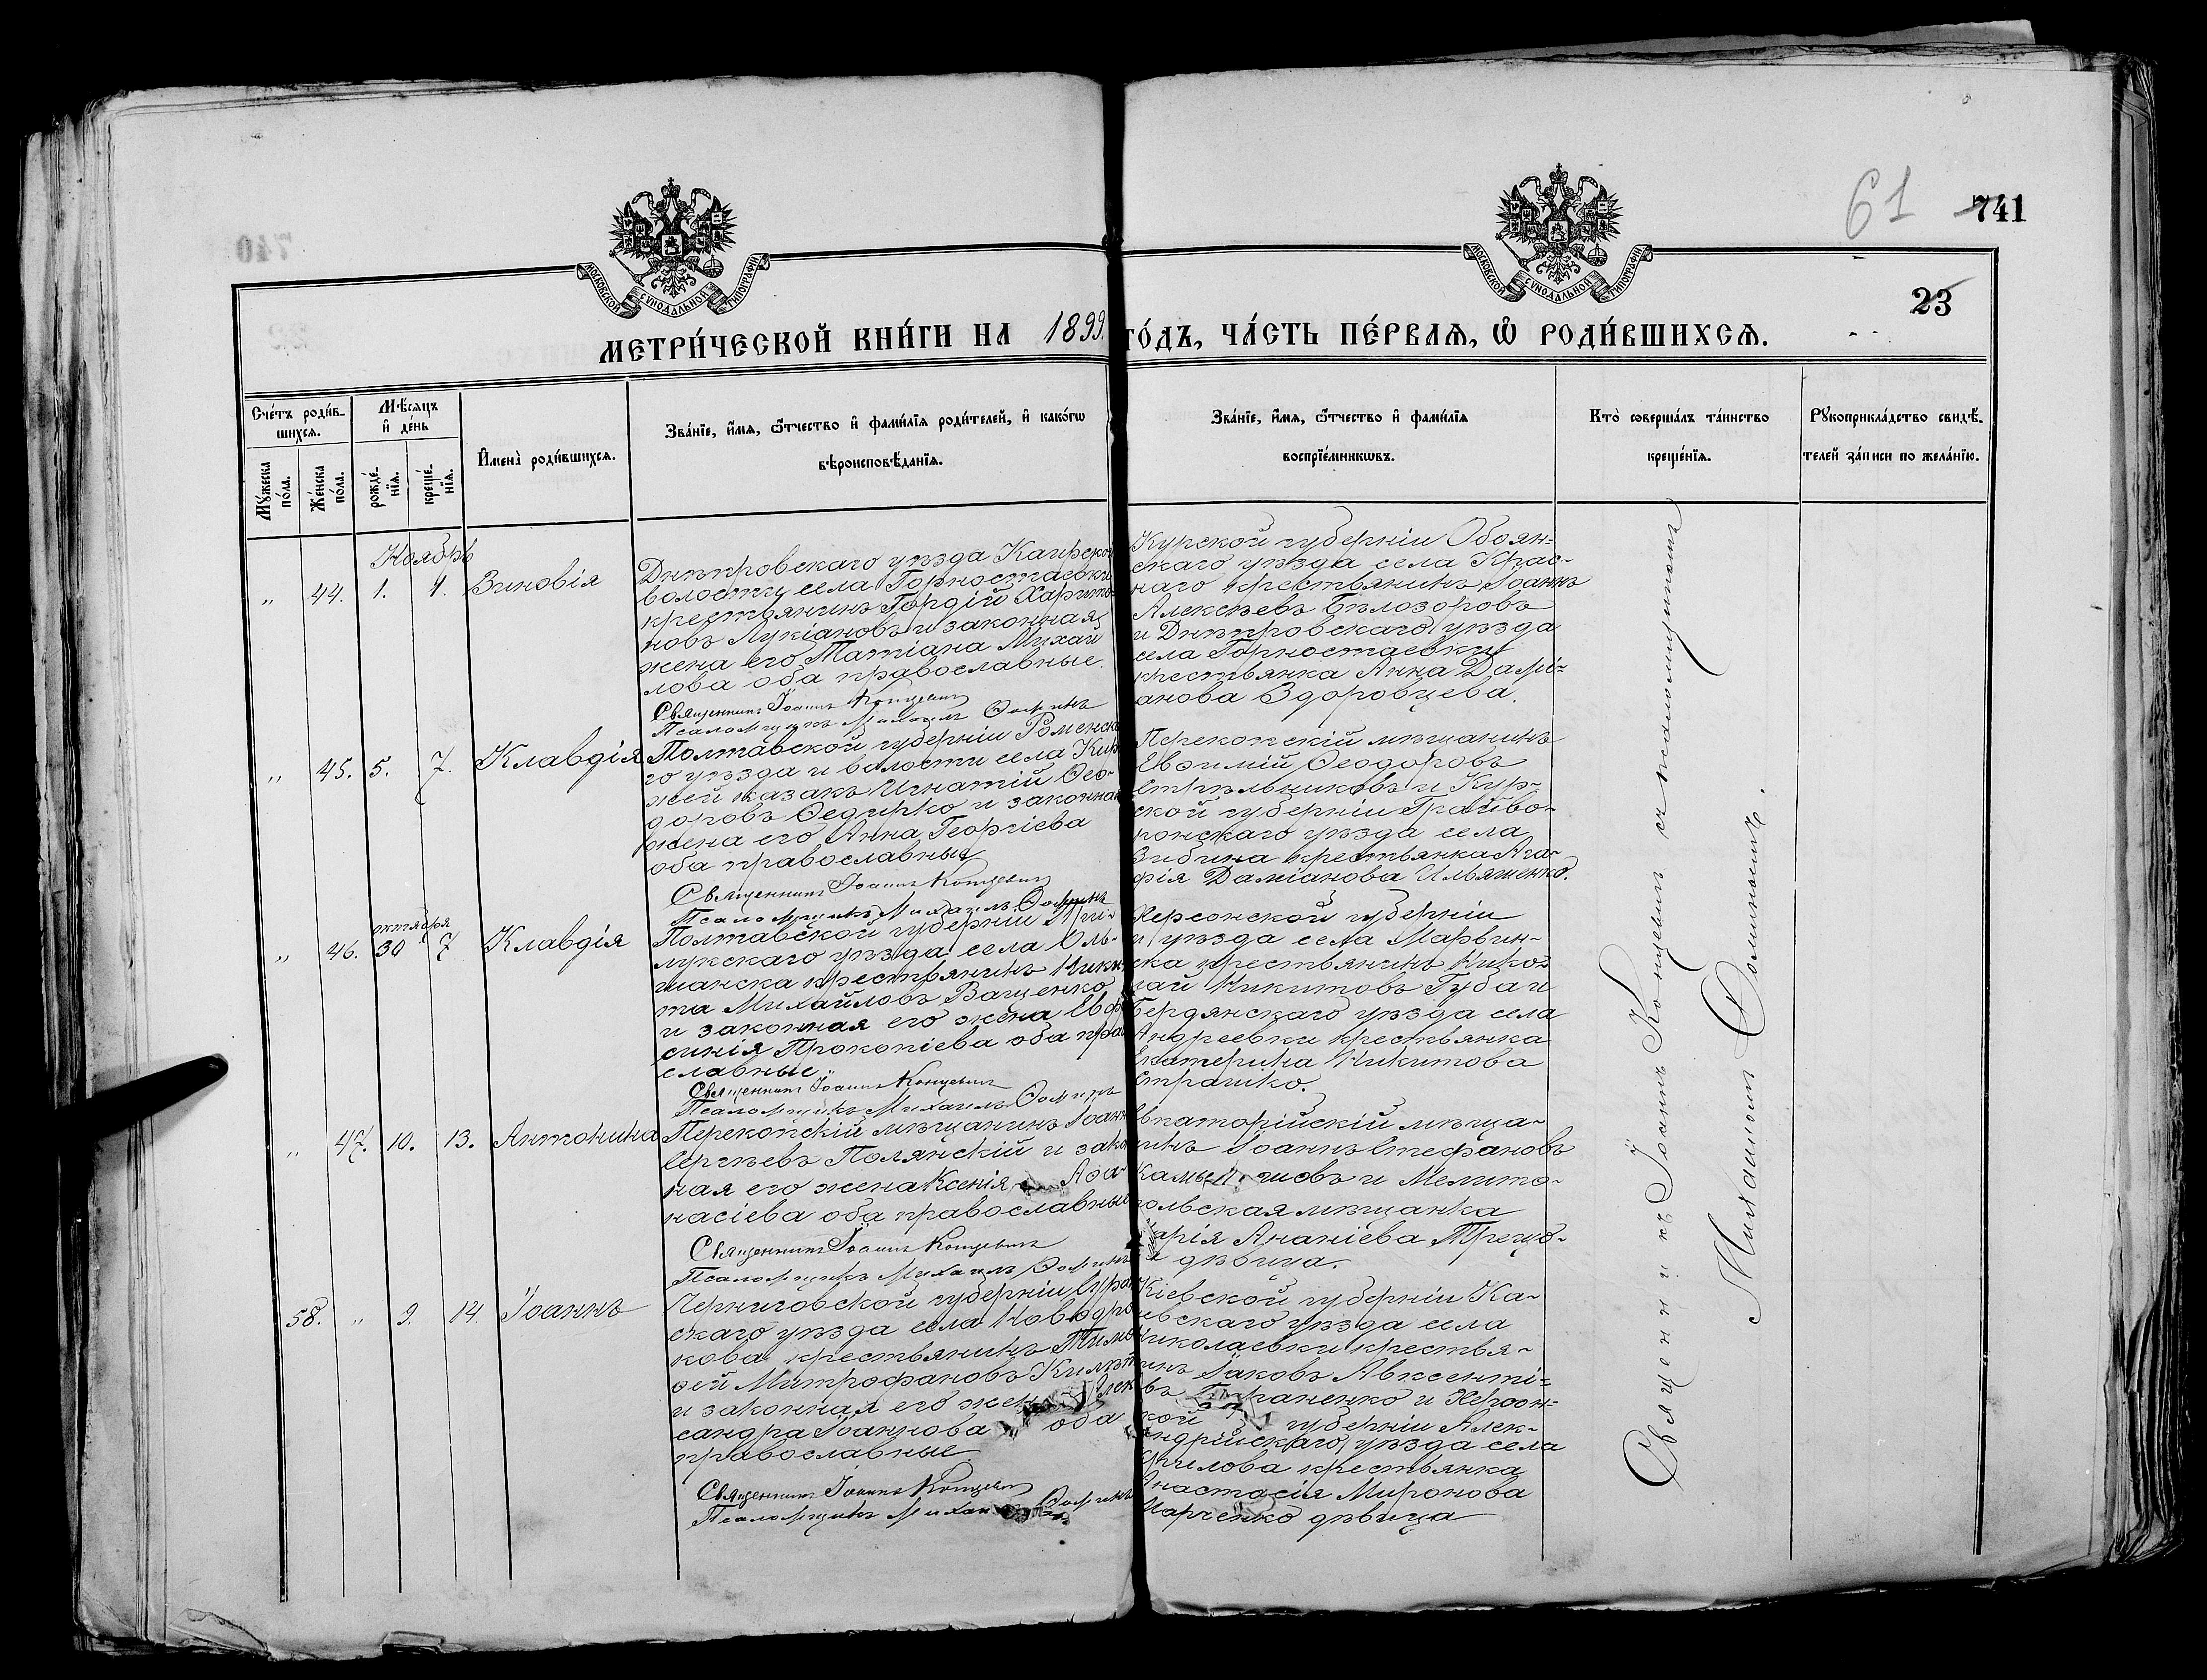 61 741
МОСКОВСКОЙ СУНОДАЛЬНОЙ ТИПОГРАФІИ
МОСКОВСКОЙ СУНОДАЛЬНОЙ ТИПОГРАФІИ
23
МЕТРИ́ЧЕСКОЙ КНИ́ГИ НА 1899. ГО́ДЪ, ЧА́СТЬ ПЕ́РВАЯ, Ѡ РОДИ́ВШИХСЯ.
Сче́тъ роди́в-
шихся.
Мꙋжеска по́ла.
Же́нска по́ла.
Мѣ́сяцъ и де́нь
рожде́нїя.
креще́нїя.
Имена̀ роди́вшихся.
Зва́нїе, и́мя, ѻ҆́тчество и фами́лїя роди́телей, и како́гѡ
вѣроисповѣ́данїя.
Зва́нїе, и́мя, ѻ҆́тчество и фами́лїя
воспрїе́мникѡвъ.
Кто̀ соверша́лъ та́инство
креще́нїя.
Рꙋкоприкла́дство свидѣ́-
телей за́писи по жела́нїю.
Ноябрь
„ 44. 1. 4. Зиновія
Днѣпровскаго уѣзда Каирской
волости села Горностаевки
крестьянинъ Гордій Харито-
новъ Лукіановъ и законная
жена его Татіана Михаи
лова оба православные.
Священникъ Іоаннъ Концевич
Псаломщикъ Михаилъ Ѳоминъ
Курской губерніи Обоян=
скаго уѣзда села Крас-
наго крестьянинъ Іоаннъ
Алексѣевъ Бѣлозоровъ
и Днѣпровскаго уѣзда
села Горностаевки
крестьянка Анна Дамі-
анова Здоровцева.
„ 45. 5. 7. Клавдія
Полтавской губерніи Роменска
го уѣзда и волости села
жей казакъ Игнатій Ѳео-
доровъ Ѳедирко и законная
жена его Анна Георгіева
оба православные
Священникъ Іоаннъ Концевич
Псаломщикъ Михаилъ Ѳоминъ
Перекопскій мѣщанинъ
Евѳимій Ѳеодоровъ
Стрѣльниковъ и Кур-
ской губерніи Грайво-
ронскаго уѣзда села
Зибина крестьянка Ага-
фія Даміанова Ильяшенко.
октября
„ 46. 30 7 Клавдія
Полтавской губерніи При-
лукскаго уѣзда села Оль-
шанска крестьянинъ Ники
та Михайловъ Ващенко
и законная его жена Евфро
синія Прокопіева оба пра
славные
Священникъ Іоаннъ Концевич
Псаломщикъ Михаилъ Ѳоминъ
Херсонской губерніи
и уѣзда села Марьин-
ска крестьянинъ Нико-
лай Никитовъ Губа и
Бердянскаго уѣзда села
Андреевки крестьянка
Екатерина Никитова
Страшко.
„ 47. 10. 13. Антонина
Перекопскій мѣщанинъ Іоаннъ
Сергѣевъ Полянскій и закон
ная его жена Ксенія Аѳа-
насіева оба православные
Священникъ Іоаннъ Концевич
Псаломщикъ Михаилъ Ѳоминъ
Евпаторійскій мѣща-
нинъ Іоаннъ Стефановъ
Камышовъ и Мелито-
польская мѣщанка
Марія Ананіева Трещо-
ва дѣвица.
58. „ 9. 14. Іоаннъ
Черниговской губерніи Сураж
скаго уѣзда села Новодро
кова крестьянинъ Тимо
ѳей Митрофановъ
и законная его жена Алек
сандра Іоаннова оба
православные
Священникъ Іоаннъ Концевич
Псаломщикъ Михаилъ Ѳоминъ
Кіевской губерніи Ка-
невскаго уѣзда села
Николаевки крестья-
нинъ Іаковъ Авксенті=
евъ и Херсон=
ской губерніи Алек-
сандрійскаго уѣзда села
крестьянка
Анастасія Миронова
Марченко дѣвица
Священникъ Іоаннъ Концевич съ псаломщикомъ
Михаиломъ Ѳоминымъ.